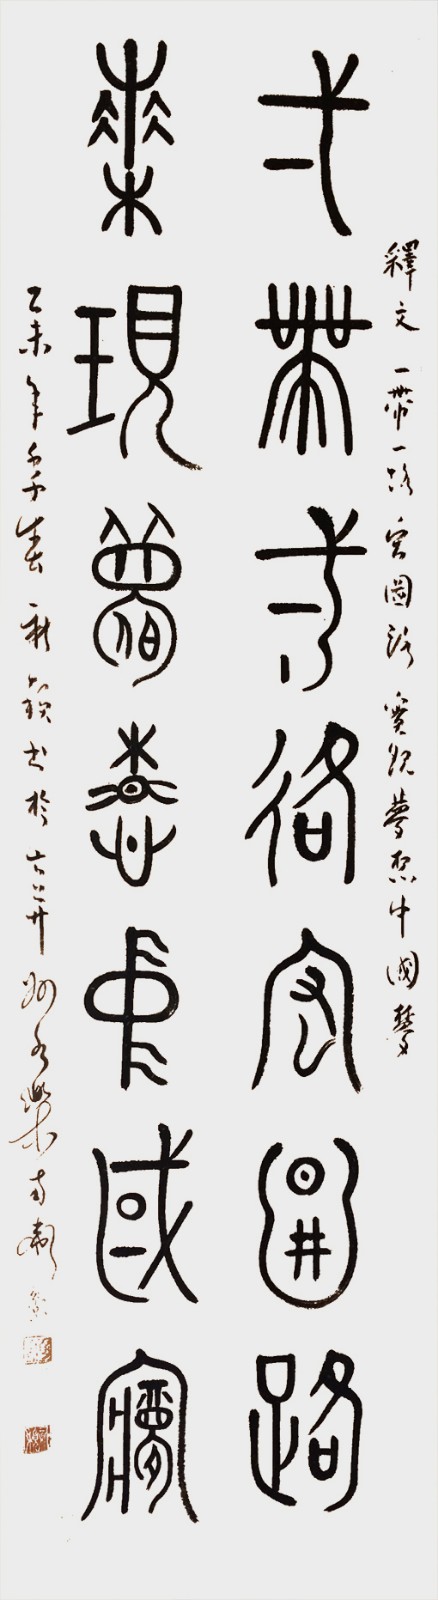 釋文 一帶一路宏圖路 實現夢想中國夢
弌帶弌路宏圖路
現夢想中國夢
乙未年 春 書於古 州永樂南